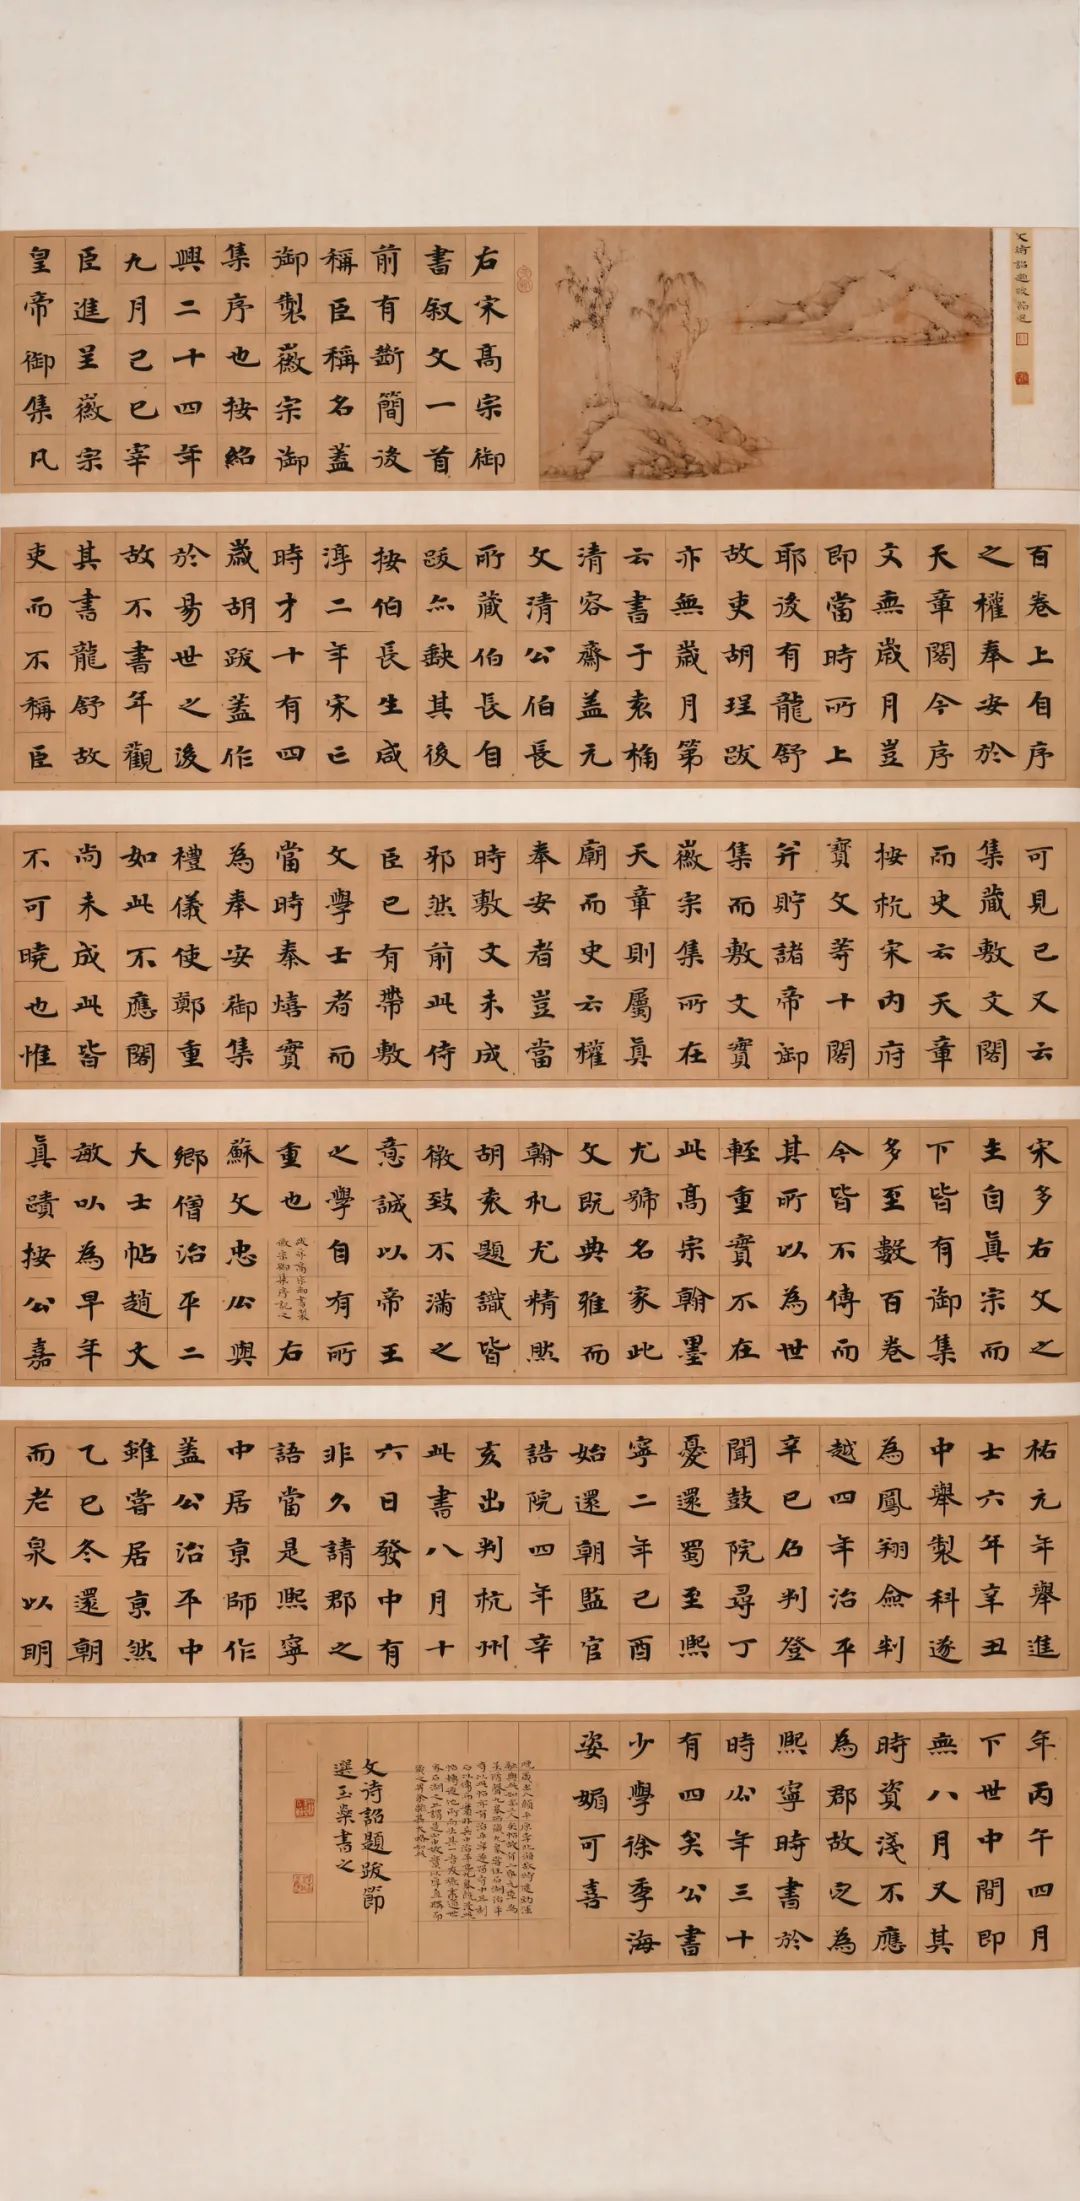 文诗詔題跋節選
右宋高宗御
書叙文一首
前有斷簡後
稱臣稱名蓋
御製徽宗御
集序也按紹
興二十四年
九月己巳宰
臣進呈徽宗
皇帝御集凡
百卷上自序
之權奉安於
天章閣今序
文無歲月豈
即當時所上
耶後有龍舒
故吏胡珵跋
亦無歲月第
云書于袁桷
清容齋蓋元
文清公伯長
所藏伯長自
跋亦缺其後
按伯長生咸
淳二年宋亡
時才十有四
歲胡跋蓋作
於易世之後
故不書年觀
其書龍舒故
吏而不稱臣
可見已又云
集藏敷文閣
而史云天章
按杭宋內府
寶文等十閣
并貯諸帝御
集而敷文實
徽宗集所在
天章則屬真
廟而史云權
奉安者豈當
時敷文未成
邪然前此侍
臣已有帶敷
文學士者而
當時秦熺實
為奉安御集
禮儀使鄭重
如此不應閣
尚未成此皆
不可曉也惟
宋多右文之
主自真宗而
下皆有御集
多至數百卷
今皆不傳而
其所以為世
輕重實不在
此高宗翰墨
尤號名家此
文既典雅而
翰札尤精然
胡袁題識皆
微致不滿之
意誠以帝王
之學自有所
重也
跋宋高宗御書製
徽宗御集序記之
右
蘇文忠公與
鄉僧治平二
大士帖趙文
敏以為早年
真蹟按公嘉
祐元年舉進
士六年辛丑
中舉製科遂
為鳳翔僉判
越四年治平
辛巳召判登
聞鼓院尋丁
憂還蜀至熙
寧二年己酉
始還朝監官
誥院四年辛
亥出判杭州
此書八月十
六日發中有
非久請郡之
語當是熙寧
中居京師作
蓋公治平中
雖嘗居京然
乙巳冬還朝
而老泉以明
年丙午四月
下世中間即
無八月又其
時資淺不應
為郡故定為
熙寧時書於
時公年三十
有四矣公書
少學徐季海
姿媚可喜
文诗詔題跋節
選玉燊書之